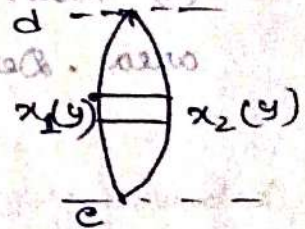 d
x₁(y) x₂(y)
c